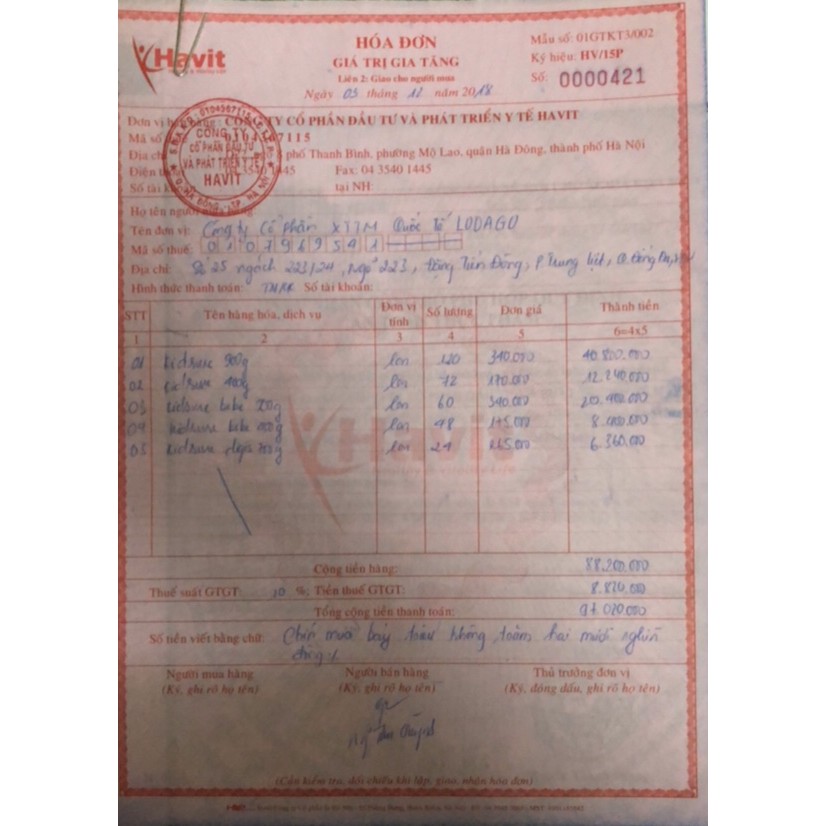 Havit
HÓA ĐƠN
GIÁ TRỊ GIA TĂNG
Liên 2: Giao cho người mua
Ngày 05 tháng 12 năm 2018
Mẫu số: 01GTKT3/002
Ký hiệu: HV/15P
Số: 0000421
CÔNG TY CỔ PHẦN ĐẦU TƯ VÀ PHÁT TRIỂN Y TẾ HAVIT
Mã số 7115
Địa chỉ phố Thanh Bình, phường Mộ Lao, quận Hà Đông, thành phố Hà Nội
Điện 04 3540 1445 Fax: 04 3540 1445
Số tài tại NH:
CÔNG TY
CỔ PHẦN ĐẦU TƯ
VÀ PHÁT TRIỂN Y TẾ
HAVIT
Họ tên người mua hàng:
Tên đơn vị: Công ty Cổ phần XTTM Quốc Tế LODAGO
Mã số thuế: 0107969591
Địa chỉ: Số 25 ngách 223/24, ngõ 223, Đặng Tiến Đông, P. Trung Liệt, Q. Đống Đa
Hình thức thanh toán: TM/CK Số tài khoản:
STT Tên hàng hóa, dịch vụ Đơn vị tính Số lượng Đơn giá Thành tiền
1 2 3 4 5 6=4x5
01 Kidsure 900g lon 120 340.000 40.800.000
02 Kidsure 400g lon 72 170.000 12.240.000
03 Kidsure bebe lon 60 340.000 20.400.000
04 Kidsure bebe lon 48
05 Kidsure lon 24 265.000 6.360.000
Havit
Cộng tiền hàng: 88.200.000
Thuế suất GTGT: 10 %; Tiền thuế GTGT: 8.820.000
Tổng cộng tiền thanh toán: 97.020.000
Số tiền viết bằng chữ: Chín mươi bảy triệu không trăm hai mươi nghìn
đồng
Người mua hàng Người bán hàng Thủ trưởng đơn vị
(Ký, ghi rõ họ tên) (Ký, ghi rõ họ tên) (Ký, đóng dấu, ghi rõ họ tên)
(Cần kiểm tra, đối chiếu khi lập, giao, nhận hóa đơn)